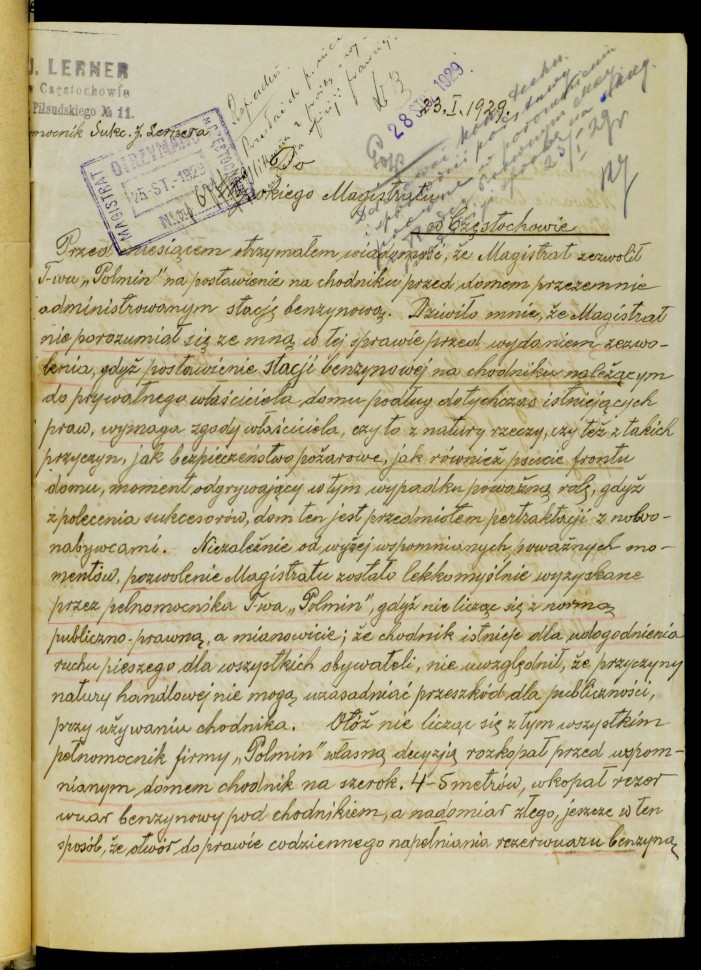 J. LERNER
w Częstochowie
Piłsudskiego № 11.
Pełnomocnik Sukc. J. Lernera
MAGISTRAT
OTRZYMANO
25. ST. 1929
28 STY. 1929
23. I. 1929.
23/I 29r
Do
Magistratu
w Częstochowie
Przed miesiącem otrzymałem wiadomość, że Magistrat zezwolił
T-wu „Polmin” na postawienie na chodniku przed domem przezemnie
administrowanym stację benzynową. Dziwiło mnie, że Magistrat
nie porozumiał się ze mną w tej sprawie przed wydaniem zezwo-
lenia, gdyż postawienie stacji benzynowej na chodniku należącym
do prywatnego właściciela domu podług dotychczas istniejących
praw, wymaga zgody właściciela, czy to z natury rzeczy, czy też z takich
przyczyn, jak bezpieczeństwo pożarowe, jak również psucie frontu
domu, moment odgrywający w tym wypadku poważną rolę, gdyż
z polecenia sukcesorów, dom ten jest przedmiotem pertraktacji z nowo-
nabywcami. Niezależnie od wyżej wspomnianych poważnych mo-
mentów, pozwolenie Magistratu zostało lekkomyślnie wyzyskane
przez pełnomocnika T-wa „Polmin”, gdyż nie licząc się z normą
publiczno-prawną, a mianowicie; że chodnik istnieje dla udogodnienia
ruchu pieszego dla wszystkich obywateli, nie uwzględnił, że przyczyny
natury handlowej nie mogą uzasadniać przeszkód dla publiczności,
przy używaniu chodnika. Otóż nie licząc się z tym wszystkim
pełnomocnik firmy „Polmin” własną decyzją rozkopał przed wspom-
nianym domem chodnik na szerok. 4-5 metrów, wkopał rezer
wuar benzynowy pod chodnikiem, a nadomiar złego, jeszcze w ten
sposób, że otwór do prawie codziennego napełniania rezerwuaru benzyną